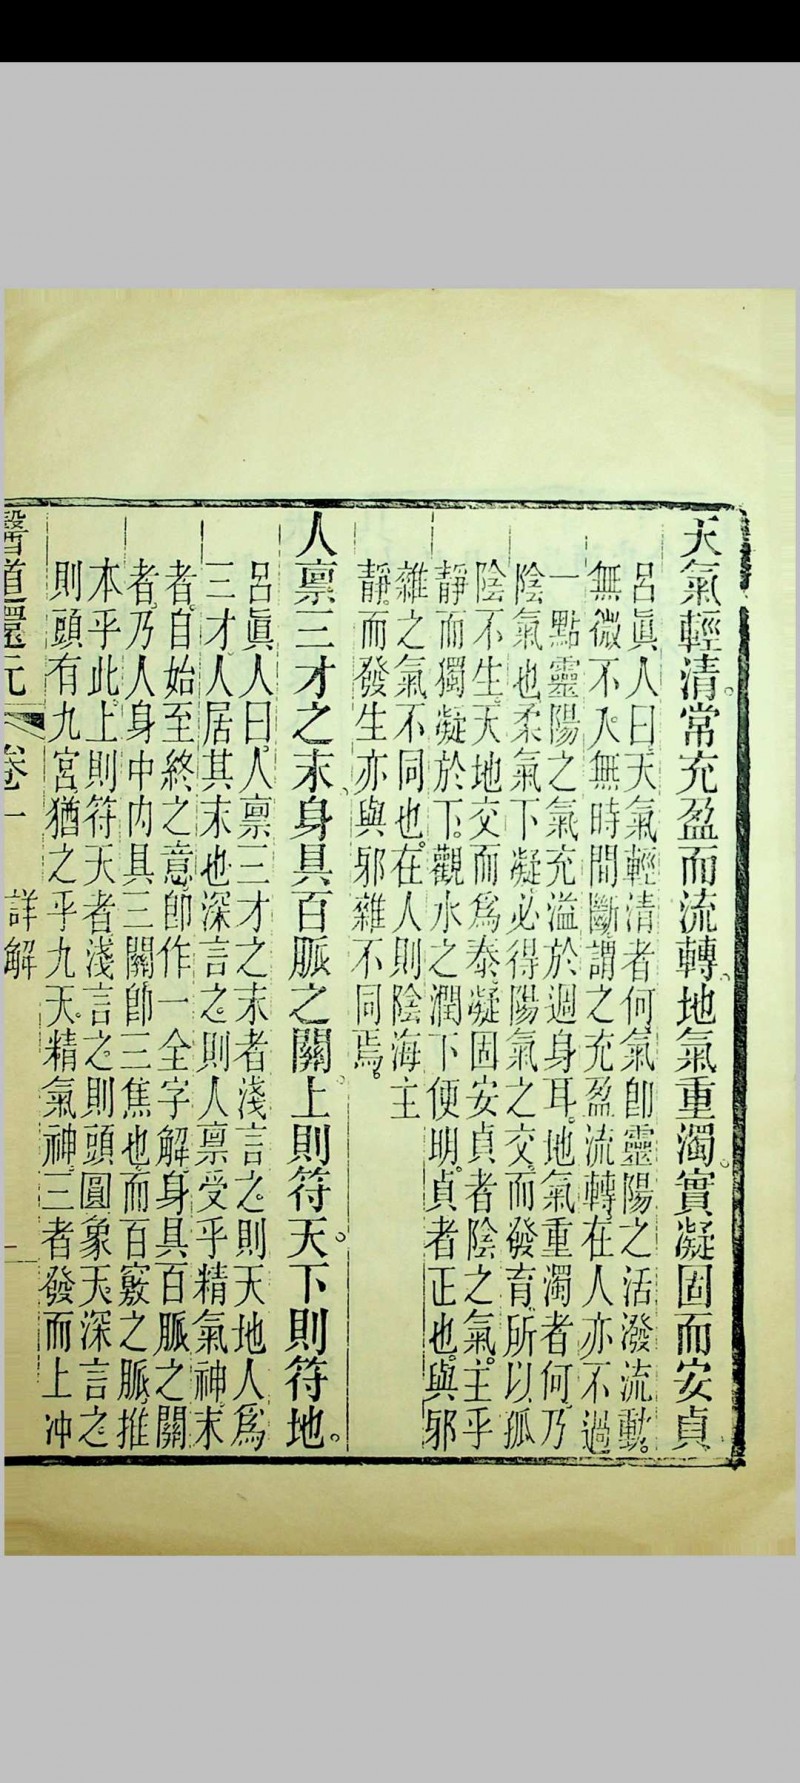 天氣輕清。常充盈而流轉。地氣重濁。實凝固而安貞
呂眞人曰。天氣輕清者何。氣卽靈陽之活潑流動。
無微不入。無時間斷。謂之充盈流轉。在人亦不過
一點靈陽之氣充溢於週身耳。地氣重濁者何。乃
陰氣也。柔氣下凝。必得陽氣之交。而發育。所以孤
陰不生。天地交而爲泰。凝固安貞者。陰之氣。主乎
靜而獨凝於下。觀水之潤下便明。貞者正也。與邪
雜之氣不同也。在人則陰海主
靜。而發生亦與邪雜不同焉。
人禀三才之末、身具百脈之關。上則符天。下則符地。
呂眞人曰。人禀三才之末者。淺言之。則天地人爲
三才。人居其末也。深言之。則人禀受乎精氣神。末
者。自始至終之意。卽作一全字解。身具百脈之關
者。乃人身中內具三關。卽三焦也。而百竅之脈。推
本乎此。上則符天者。淺言之。則頭圓象天。深言之
則頭有九宮。猶之乎九天。精氣神。三者發而上冲
醫道還元 卷一 詳解 一